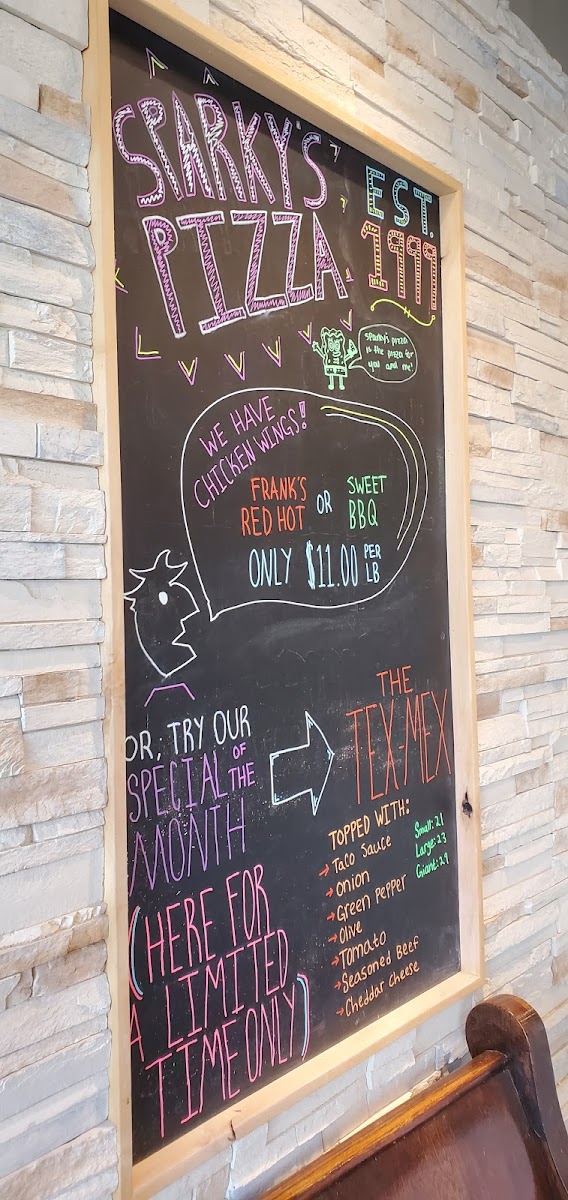 SPARKY'S
PIZZA
EST.
1999
Sparky's pizza
is the pizza for
you and me!
WE HAVE
CHICKEN WINGS!
FRANK'S
RED HOT
OR
SWEET
BBQ
ONLY $11.00 PER
LB
OR, TRY OUR
SPECIAL OF
THE
MONTH
(HERE FOR
A LIMITED
TIME ONLY)
THE
TEX-MEX
TOPPED WITH:
→ Taco Sauce
→ Onion
→ Green Pepper
→ Olive
→ Tomato
→ Seasoned Beef
→ Cheddar Cheese
Small: 21
Large: 23
Giant: 29